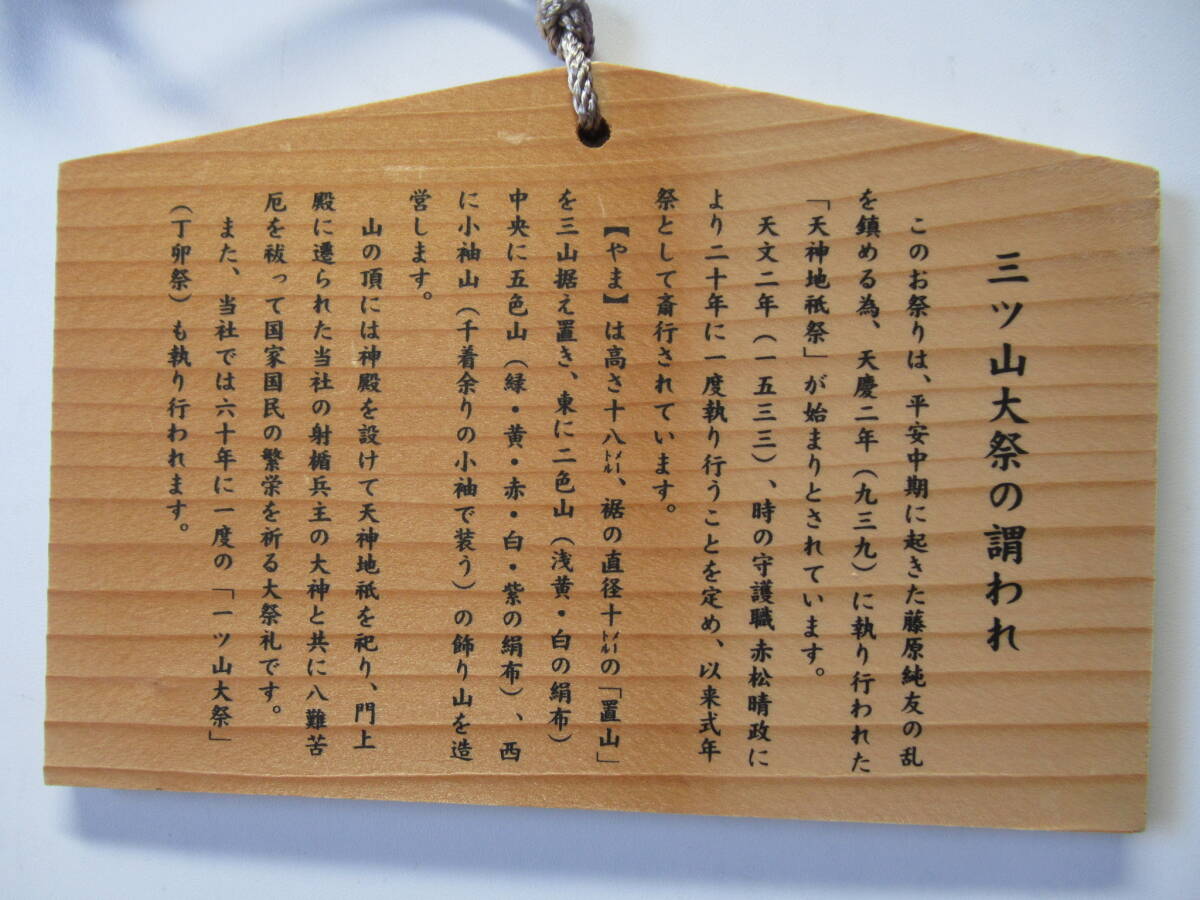 三ツ山大祭の謂われ
このお祭りは、平安中期に起きた藤原純友の乱
を鎮める為、天慶二年（九三九）に執り行われた
「天神地祇祭」が始まりとされています。
天文二年（一五三三）、時の守護職赤松晴政に
より二十年に一度執り行うことを定め、以来式年
祭として斎行されています。
【やま】は高さ十八メートル、裾の直径十メートルの「置山」
を三山据え置き、東に二色山（浅黄・白の絹布）
中央に五色山（緑・黄・赤・白・紫の絹布）、西
に小袖山（千着余りの小袖で装う）の飾り山を造
営します。
山の頂には神殿を設けて天神地祇を祀り、門上
殿に遷られた当社の射楯兵主の大神と共に八難苦
厄を祓って国家国民の繁栄を祈る大祭礼です。
また、当社では六十年に一度の「一ツ山大祭」
（丁卯祭）も執り行われます。